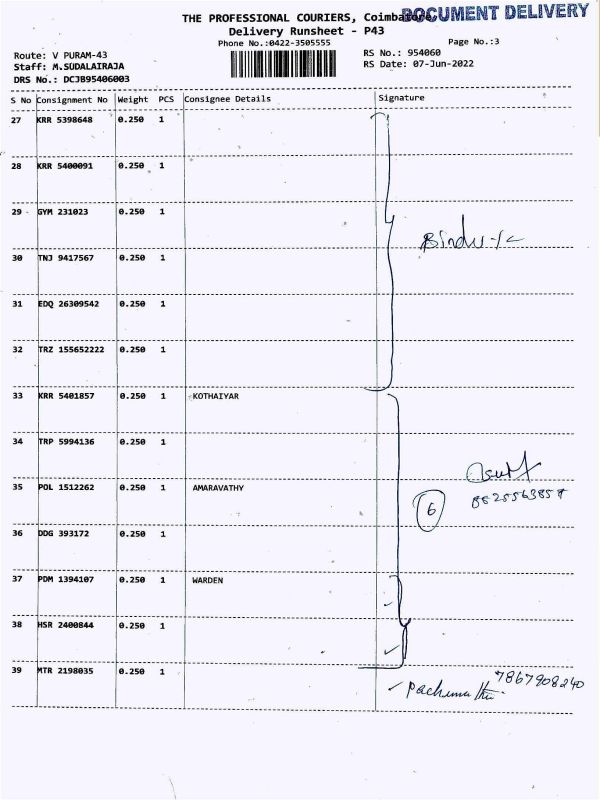 THE PROFESSIONAL COURIERS, Coimbatore.
DOCUMENT DELIVERY
Delivery Runsheet - P43
Phone No.:0422-3505555
Page No.:3
Route: V PURAM-43
RS No.: 954060
Staff: M.SUDALAIRAJA
RS Date: 07-Jun-2022
DRS No.: DCJB95406003
S No Consignment No Weight PCS Consignee Details Signature
27 KRR 5398648 0.250 1
28 KRR 5400091 0.250 1
29 GYM 231023 0.250 1
Bindu
30 TNJ 9417567 0.250 1
31 EDQ 26309542 0.250 1
32 TRZ 155652222 0.250 1
33 KRR 5401857 0.250 1 KOTHAIYAR
34 TRP 5994136 0.250 1
35 POL 1512262 0.250 1 AMARAVATHY
6
36 DDG 393172 0.250 1
37 PDM 1394107 0.250 1 WARDEN
38 HSR 2400844 0.250 1
39 MTR 2198035 0.250 1
7867908240